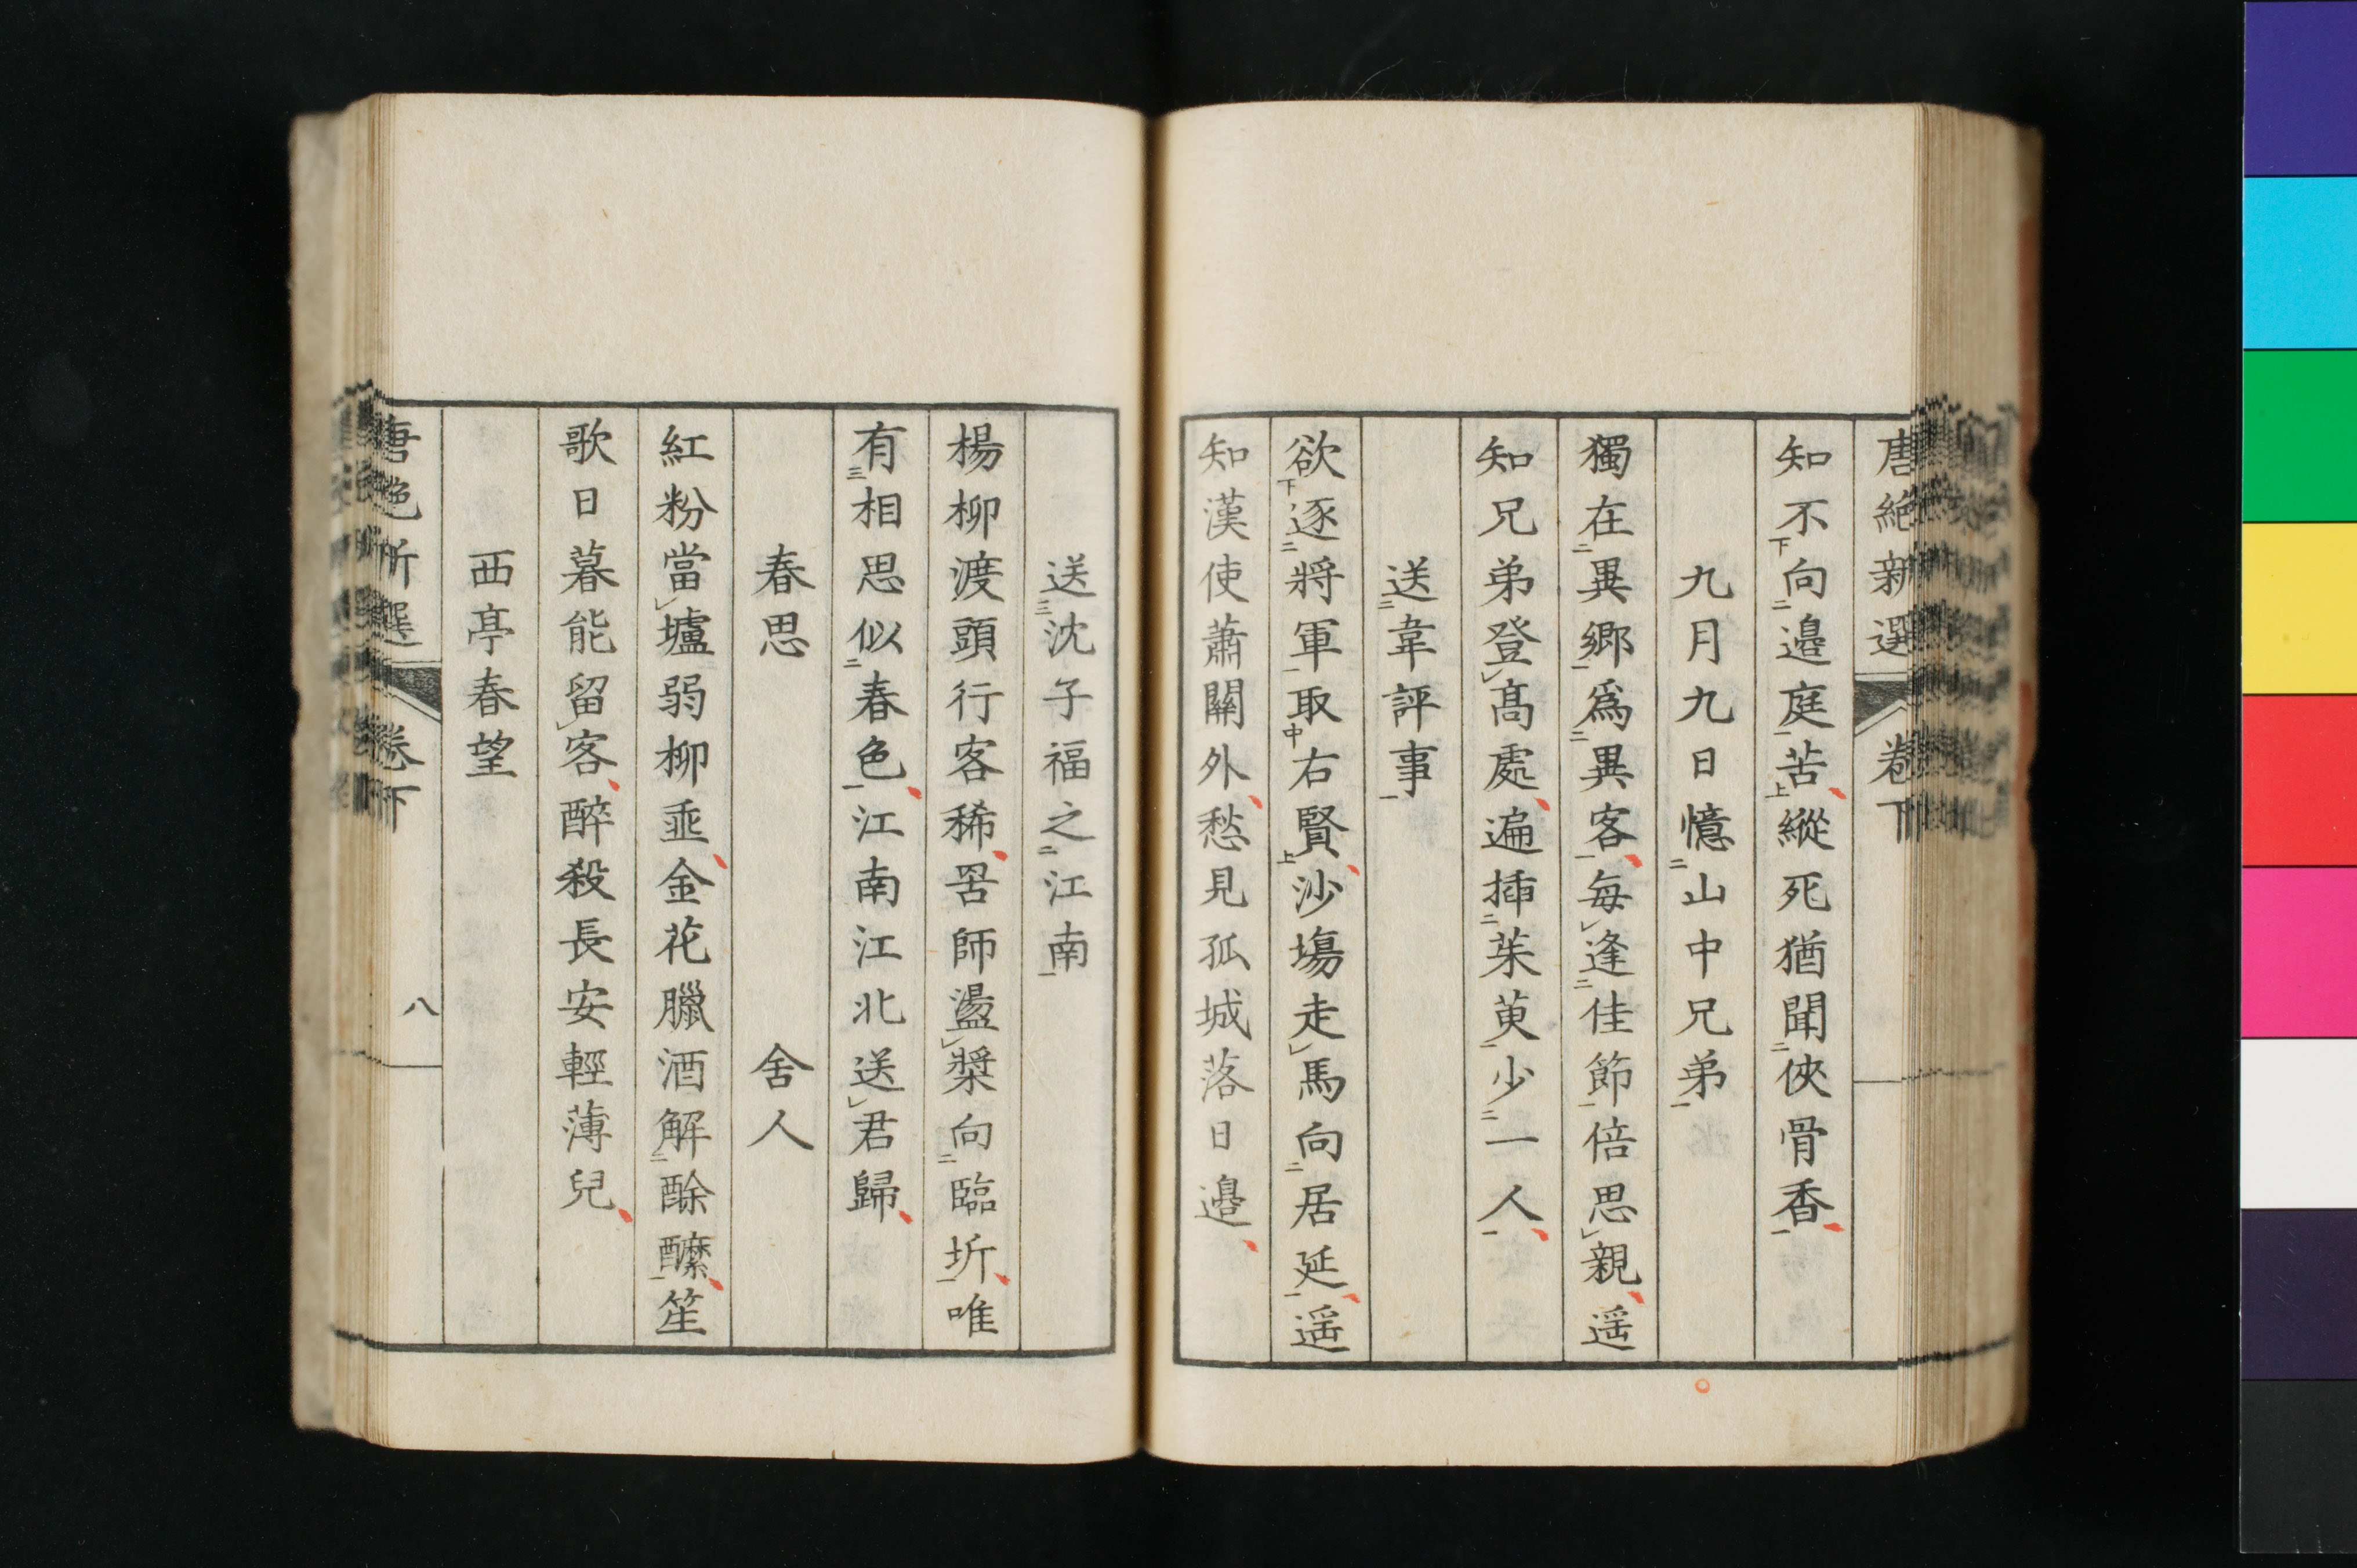 唐絶新選 卷下
知不向邉庭苦縱死猶聞俠骨香
九月九日憶山中兄弟
獨在異郷爲異客每逢佳節倍思親遥
知兄弟登髙處遍揷茱萸少一人
送韋評事
欲逐將軍取右賢沙塲走馬向居延遥
知漢使蕭關外愁見孤城落日邉
送沈子福之江南
楊柳渡頭行客稀罟師盪槳向臨圻唯
有相思似春色江南江北送君歸
春思 舍人
紅粉當壚弱柳垂金花臘酒解酴醿笙
歌日暮能留客醉殺長安輕薄兒
西亭春望
唐絶新選 卷下 八